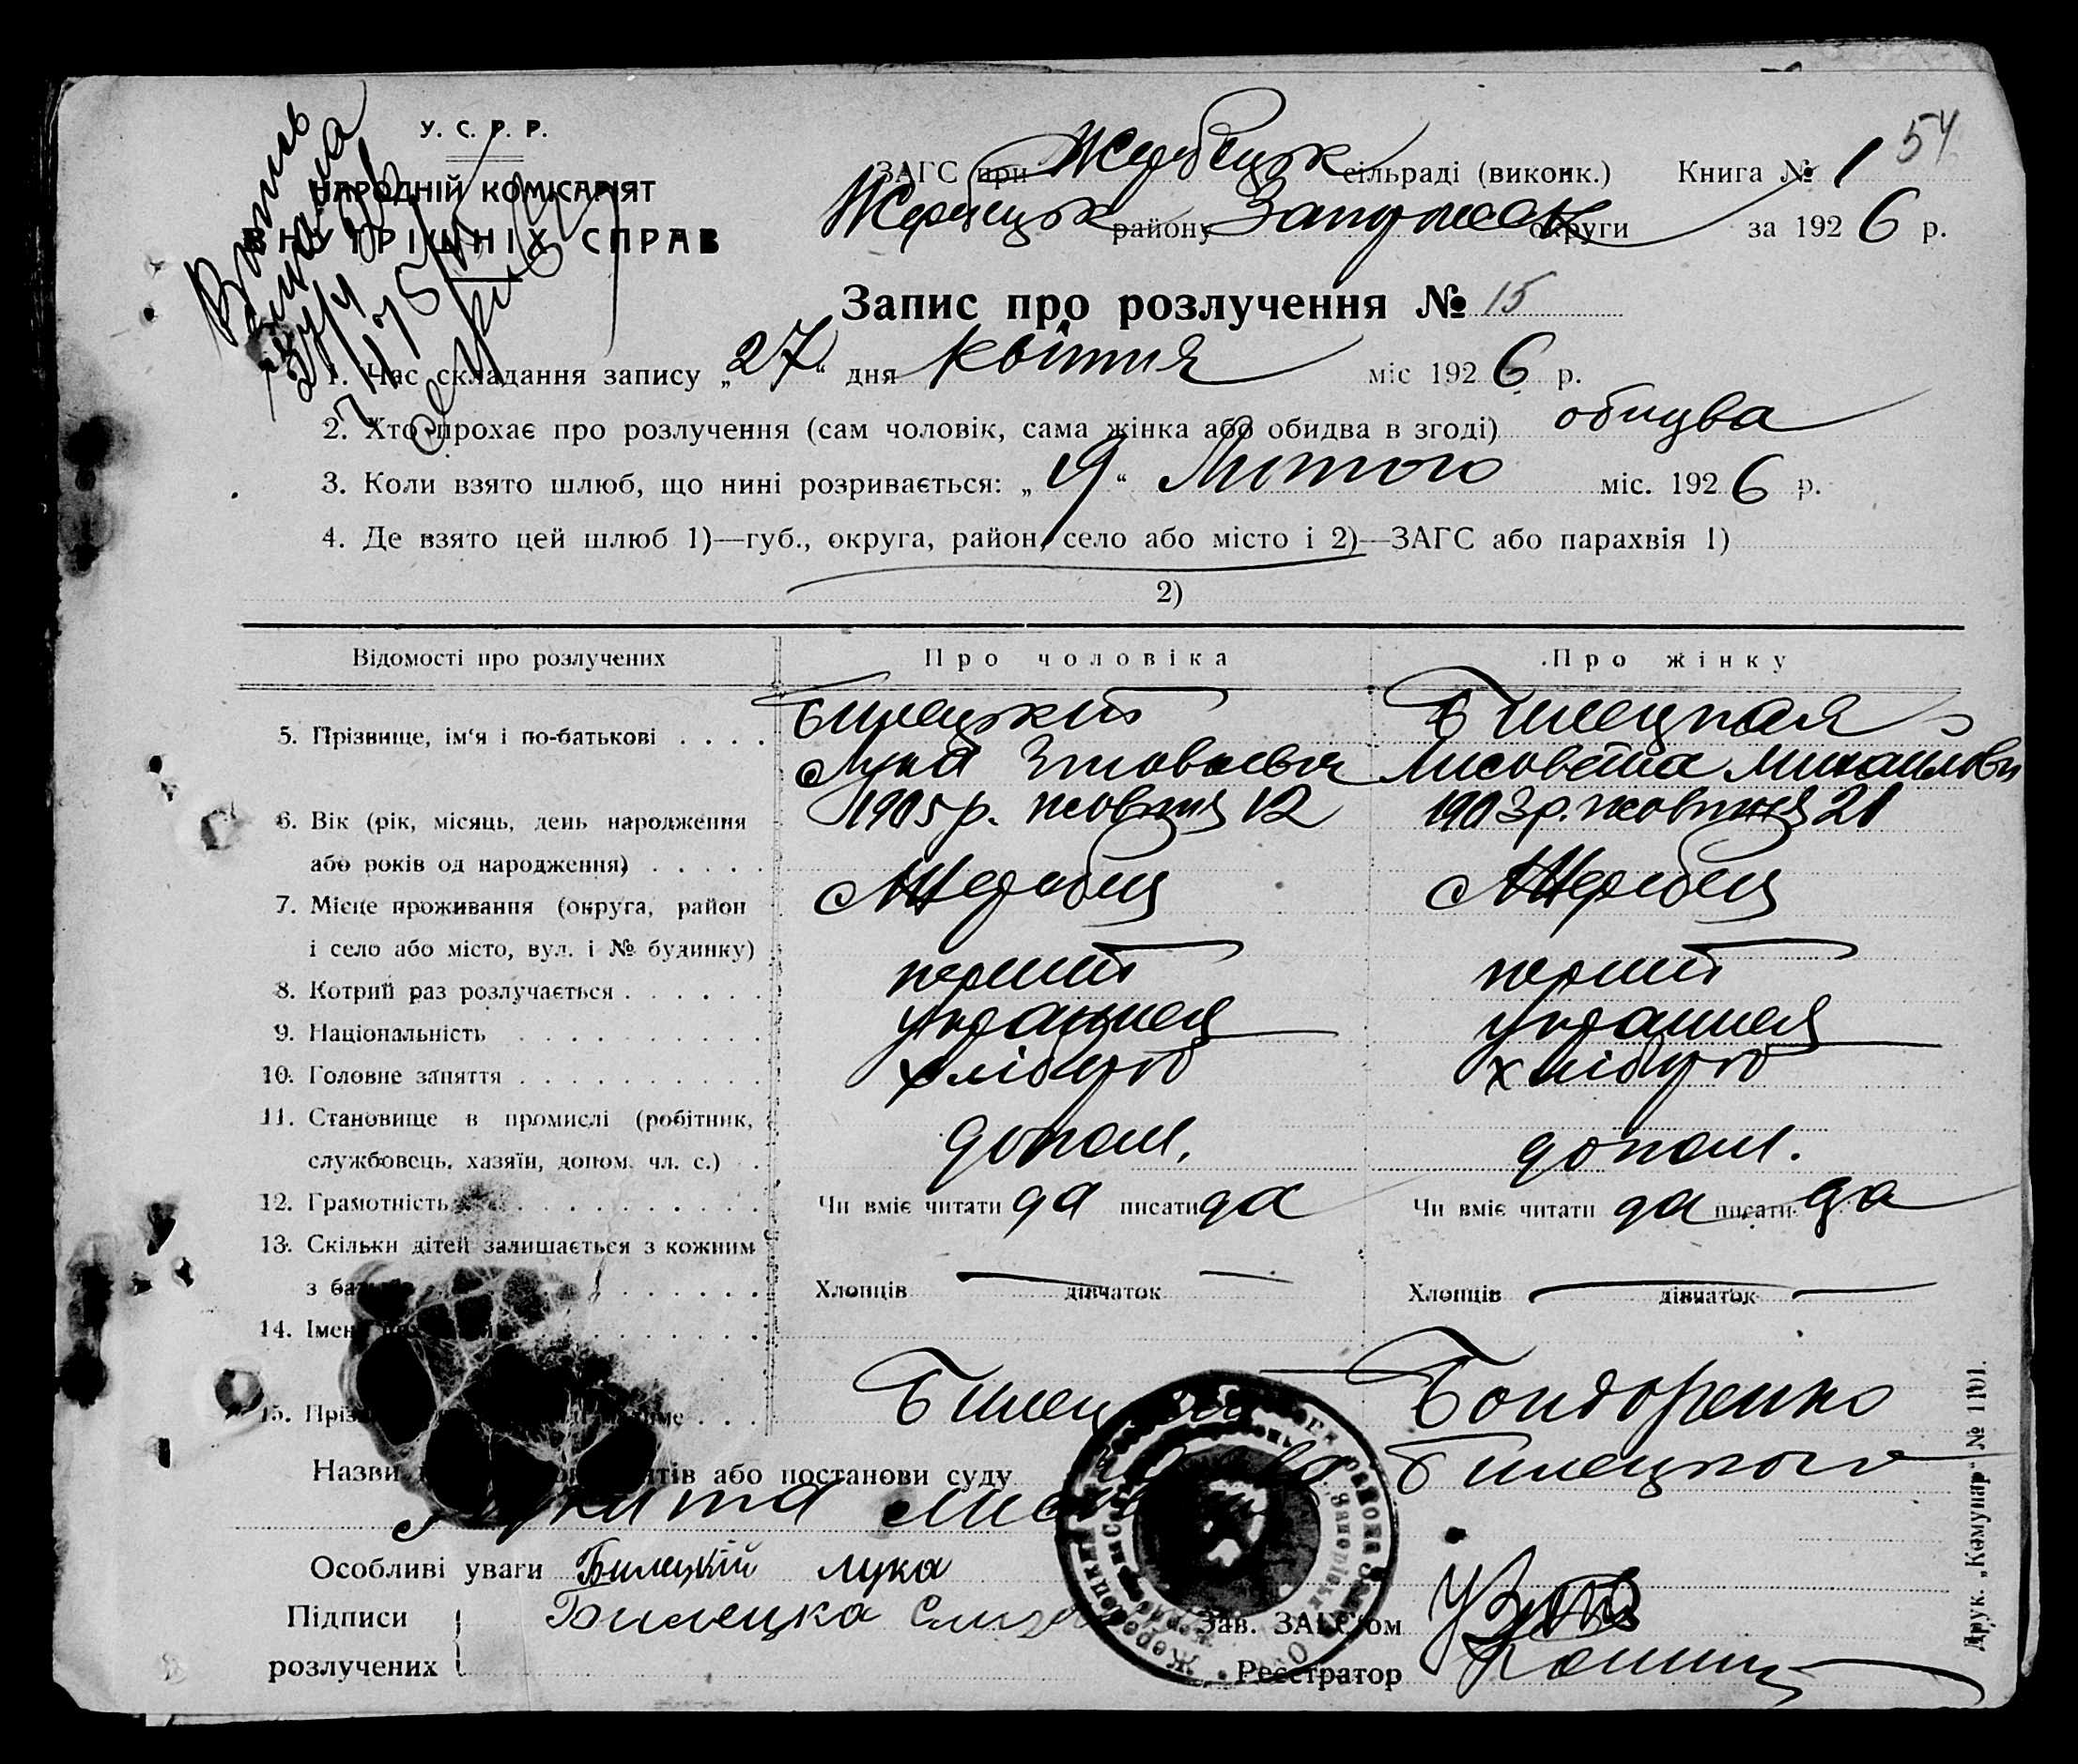 54
У. С. Р. Р.
НАРОДНІЙ КОМІСАРІЯТ
ВНУТРІШНІХ СПРАВ
ЗАГС при Жеребецьк сільраді (виконк.) Книга № 1
Жеребецьк району Запоріжськ округи за 1926 р.
Запис про розлучення № 15
1. Час складання запису „27“ дня квітня міс 1926 р.
2. Хто прохає про розлучення (сам чоловік, сама жінка або обидва в згоді) обидва
3. Коли взято шлюб, що нині розривається: „9“ Лютого міс. 1926 р.
4. Де взято цей шлюб 1)—губ., округа, район, село або місто і 2)—ЗАГС або парахвія 1)
2)
Відомості про розлучених Про чоловіка Про жінку
5. Прізвище, ім'я і по-батькові . . . . Билецький Билецкая
Лука Лисовета Михаиловн
6. Вік (рік, місяць, день народження 1905 р. жовтня 12 1903 р. жовтня 21
або років од народження) . . . . .
7. Місце проживання (округа, район с Жеребец с Жеребец
і село або місто, вул. і № будинку)
8. Котрий раз розлучається . . . . . . перший перший
9. Національність . . . . . . . . . . українец українец
10. Головне заняття . . . . . . . . . . хлібороб хлібороб
11. Становище в промислі (робітник, допом. допом.
службовець, хазяїн, допом. чл. с.) . .
12. Грамотність . . . . . . . . . . Чи вміє читати да писати да Чи вміє читати да писати да
13. Скільки дітей залишається з кожним
з Хлопців — дівчаток — Хлопців — дівчаток —
14. Імен
15. Пріз . . . Бондоренко
Назви або постанови суду Билецького
та
Особливі уваги Билецкій лука
Підписи Билецка
розлучених
Зав. ЗАГС'ом
Реєстратор
Друк. „Комунар“ № 1101.